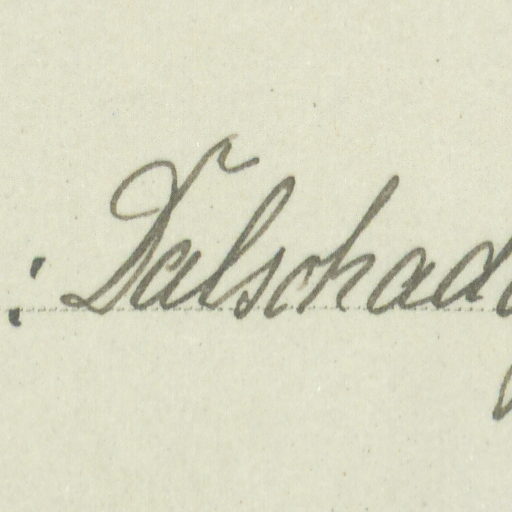 : Dalschad